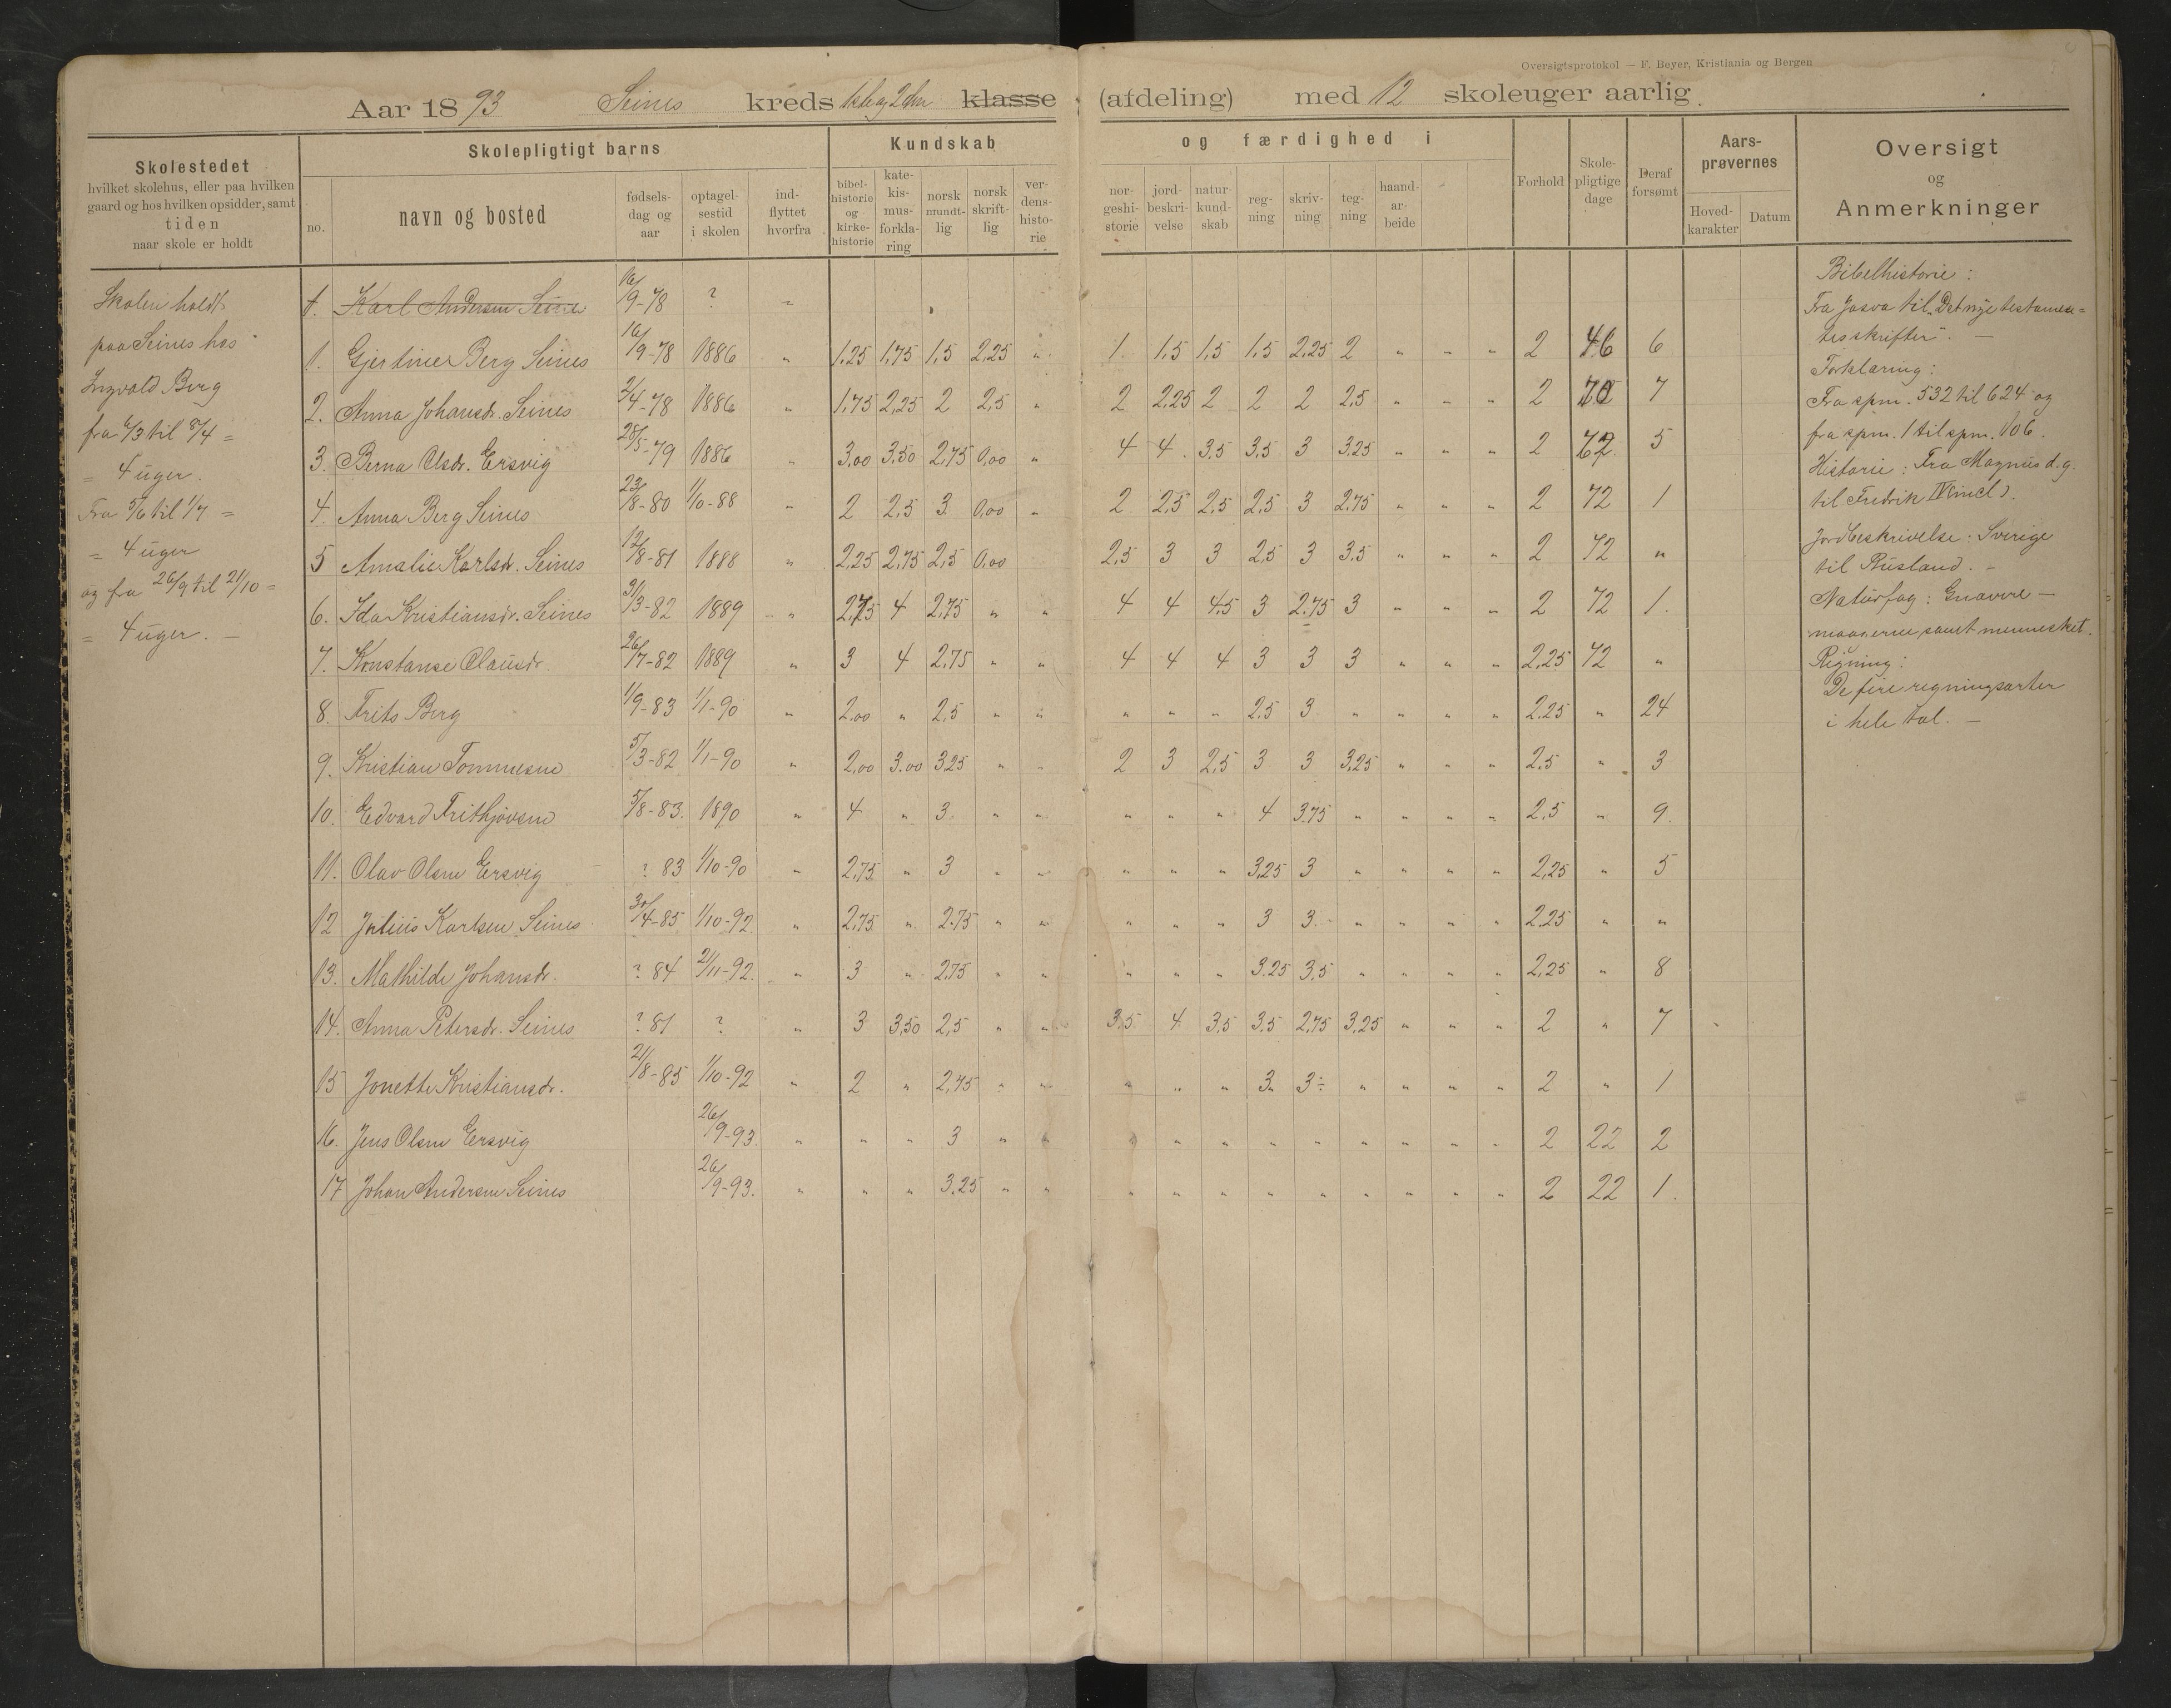 Oversigtsprotokol — F. Beyer, Kristiania og Bergen
Aar 1893 Seines kreds 1ste og 2den klasse (afdeling) med 12 skoleuger aarlig
Skolestedet
hvilket skolehus, eller paa hvilken
gaard og hos hvilken opsidder, samt
tiden
naar skole er holdt
Skolepligtigt barns
no. navn og bosted fødsels-dag og aar optagel-sestid i skolen ind-flyttet hvorfra
Kundskab og færdighed i
bibel-historie og kirke-historie kate-kis-mus-forkla-ring norsk mundt-lig norsk skrift-lig ver-dens-histo-rie nor-geshi-storie jord-beskri-velse natur-kund-skab reg-ning skriv-ning teg-ning haand-ar-beide
Forhold Skole-pligtige dage Deraf forsømt
Aars-prøvernes
Hoved-karakter Datum
Oversigt
og
Anmerkninger
Skolen holdt
paa Seines hos
Ingvald Berg
fra 6/3 til 8/4 =
= 4 uger.
Fra 5/6 til 1/7 =
= 4 uger
og fra 26/9 til 21/10 =
= 4 uger. —
1. Karl Andersen Seines 16/9-78 ? "
1. Gjertiner Berg Seines 16/9-78 1886 " 1.25 1.75 1,5 2,25 " 1. 1.5 1,5 1,5 2,25 2 " " " 2 46 6
2. Anna Johansdr. Seines 2/4-78 1886 " 1.75 2,25 2 2,5 " 2 2,25 2 2 2 2,5 " " " 2 70 7
3. Berna Olsdr. Ersvig 28/5-79 1886 " 3,00 3.50 2,75 0,00 " 4 4. 3.5 3,5 3 3,25 " " " 2 62 5
4. Anna Berg Seines 23/8-80 1/10-88 " 2 2,5 3. 0,00 " 2 2,5 2,5 2,5 3 2,75 " " " 2 72 1
5 Amalie Karlsdr. Seines 12/8-81 1888 " 2,25 2,75 2,5 0,00 2,5 3 3 2,5 3 3.5 " " " 2 72 "
6. Ida Kristiansdr. Seines 31/3-82 1889 " 2,75 4 2,75 " " 4 4 4.5 3 2.75 3 " " " 2 72 1.
7. Konstanse Clausdr. 26/7-82 1889 " 3 4 2,75 " " 4 4 4 3 3 3 " " " 2,25 72 "
8. Frits Berg 1/9-83 1/1-90 " 2,00 " 2,5 " " " " " 2.5 3 " " " " 2.25 " 24
9. Kristian Tommesen 5/3-82 1/1-90 " 2,00 3.00 3,25 " " 2 3 2,5 3 3 3,25 " " " 2.5 " 3
10. Edvard Frithjovsen 5/8-83. 1890 " 4 " 3. " " " " " 4 3.75 " " " " 2,5 " 9.
11. Olav Olsen Ersvig ? 83 1/10-90 " 2,75 " 3 " " " " " 3,25 3 " " " " 2,25 " 5
12 Julius Karlsen Seines 30/4-85 1/10-92 " 2,75 " 2.75 " " " " " 3 3. " " " " 2,25 " "
13. Mathilde Johansdr. ? 84 21/11-92. " 3 " 2,75 " " " " " 3.25 3,5 " " " " 2,25 " 8
14. Anna Petersdr. Seines ? 81 ? " 3 3,50 2,5 " " 3,5 4 3,5 3.5 2,75 3,25 " " " 2 " 7
15 Jonette Kristiansdr. 21/8-85 1/10-92 " 2 " 2,75 " " " " " 3. 3÷ " " " " 2 " 1
16. Jens Olsen Ersvig 26/9-93. " " " 3 " " " " " " " " " " " 2 22 2
17 Johan Andersen Seines 26/9-93. " " " 3,25 " " " " " " " " " " " 2 22 1.
Bibelhistorie:
Fra Josva til „Det nye testamen=
tes skrifter". —
Forklaring:
Fra spm. 532 til 624 og
fra spm. 1 til spm. 106.
Historie: Fra Magnus d. g.
til Fredrik IV incl).
Jordbeskrivelse: Sverige
til Rusland. —
Naturfag: Gnavere —
samt mennesket.
Regning:
De fire regningsarter
i hele tal. —